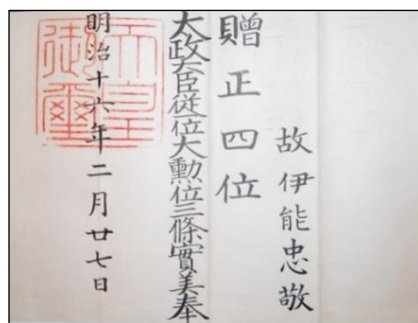 故伊能忠敬
贈正四位
太政大臣從一位大勳位三條實美奉
明治十六年二月廿七日
天皇御璽